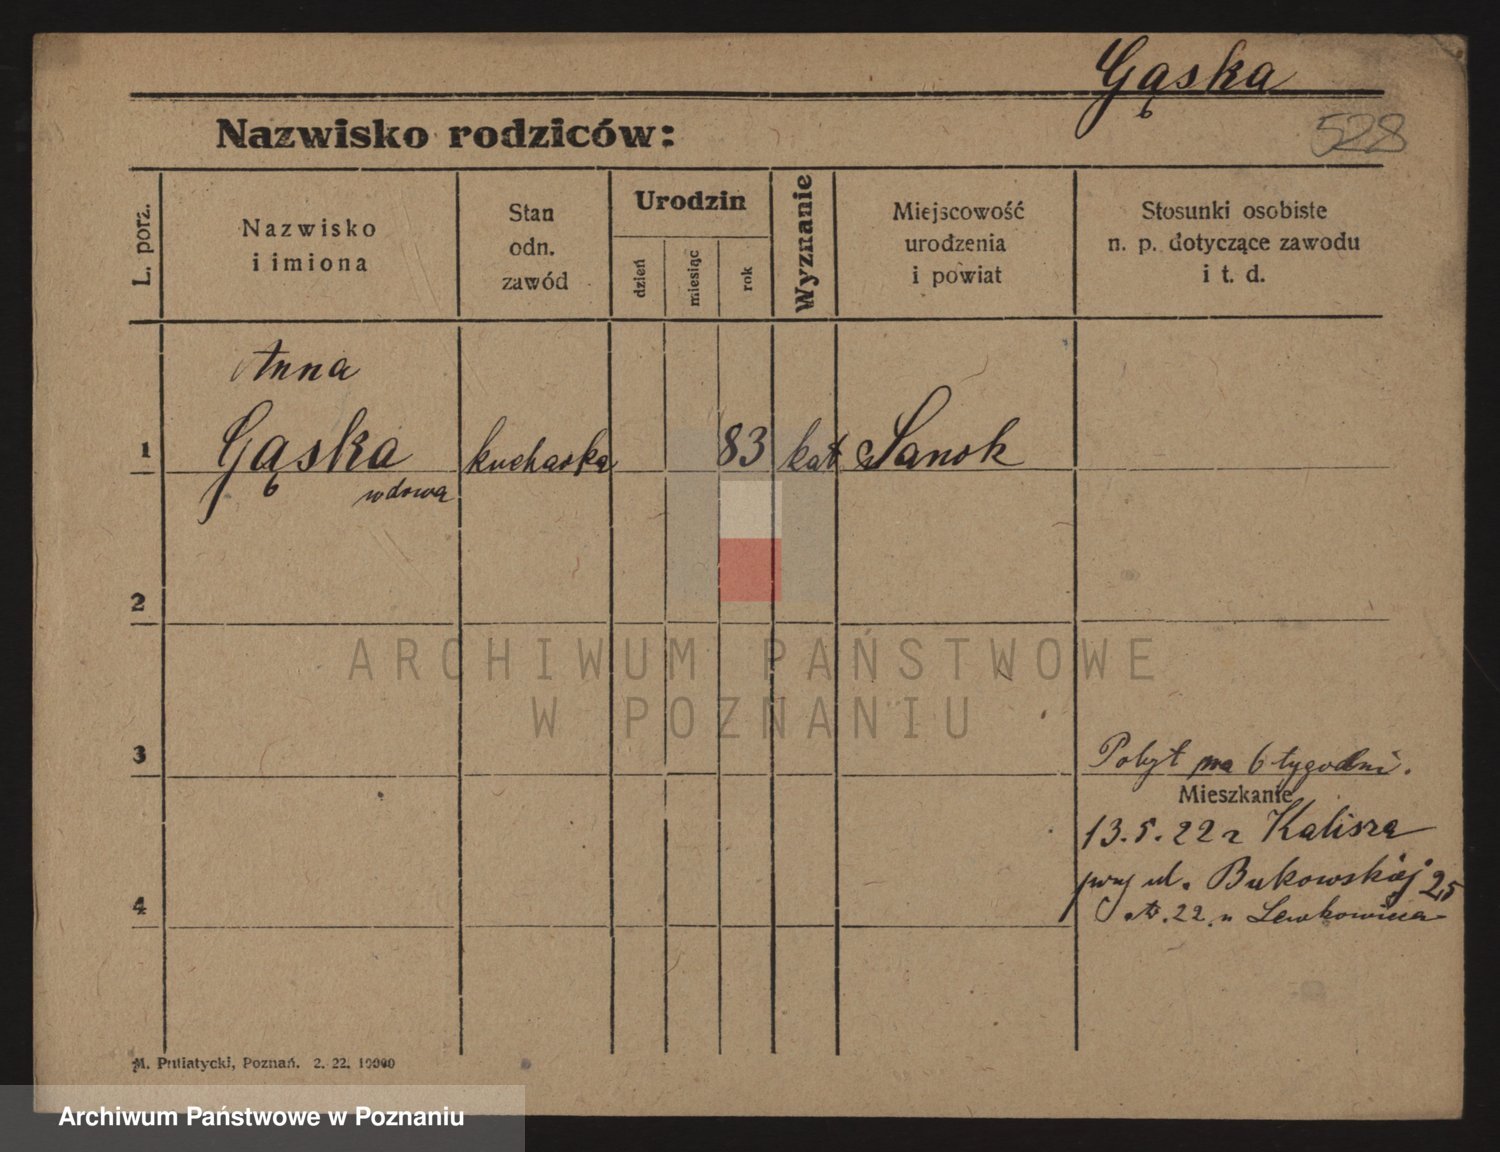 Gąska
528
Nazwisko rodziców:
L. porz.
Nazwisko
i imiona
Stan
odn.
zawód
Urodzin
dzień
miesiąc
rok
Wyznanie
Miejscowość
urodzenia
i powiat
Stosunki osobiste
n. p. dotyczące zawodu
i t. d.
Anna
1 Gąska kucharka 83 kat Sanok
wdowa
2
ARCHIWUM PAŃSTWOWE
W POZNANIU
3
Pobyt na 6 tygodni.
Mieszkanie
13.5.22 z Kalisza
przy ul. Bukowskiej 25
4
22 u Lewkowicza
M. Putiatycki, Poznań. 2. 22. 10000
Archiwum Państwowe w Poznaniu